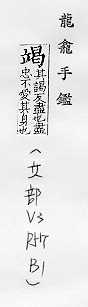 龍龕手鑑
竭
其謁反盡也盡
忠不愛其身也
(立部 V3 B1)